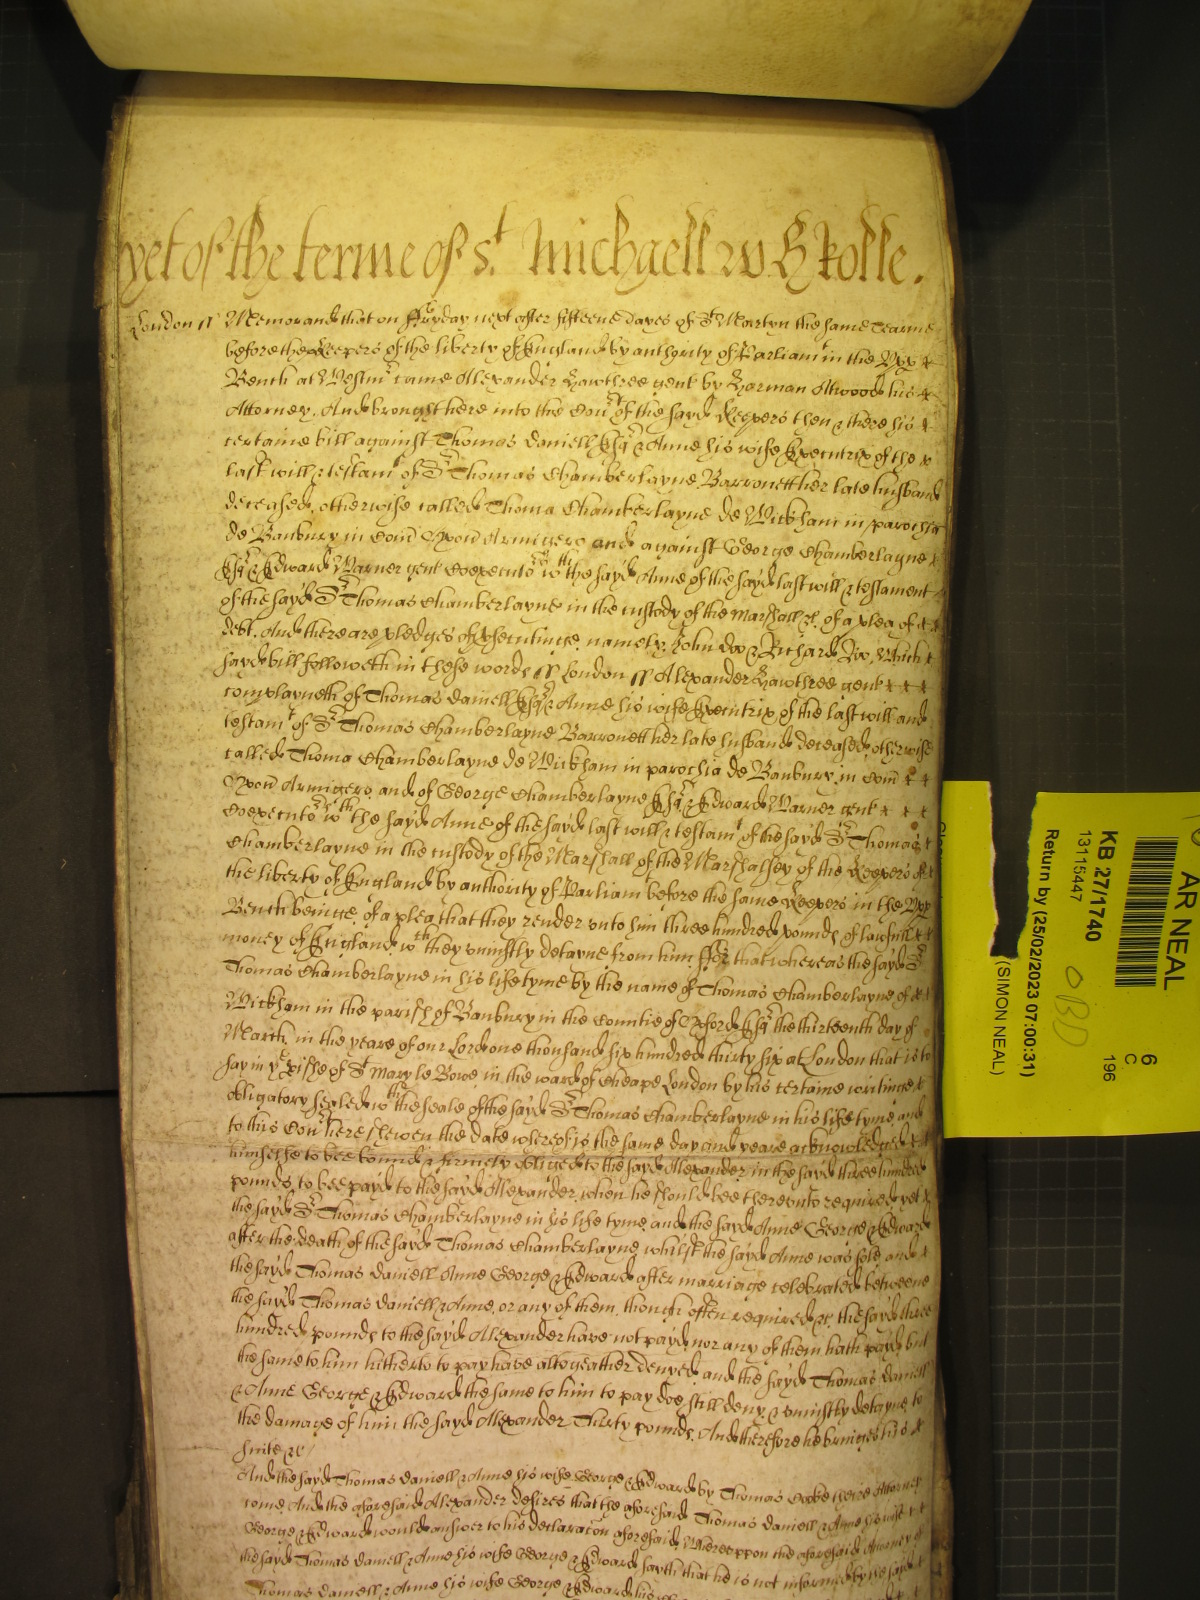 yet of the terme of St Michaell w H Rolle.
London ss Memorand that on ffryday next after fifteene dayes of St Martyn the same Tearme
before the Keepers of the liberty of England by authority of Parliamt in the Vpp
Bench at Westmr came Alexander Hawthree gent by Harman Atwood his
Attorney. And brought here into the Court of the sayd Keepers then & there his
certaine bill against Thomas Daniell Esqr & Anne his wife Executrix of the
last will & testamt of Sr Thomas Chamberlayne Barronett her late husband
deceased, otherwise called Thoma Chamberlayne de Wickham in parochia
de Banbury in Com Oxon Armigero and against George Chamberlayne
Esqr & Edward Warner gent Coexecutors wth the sayd Anne of the sayd last will & testament
of the sayd Sr Thomas Chamberlayne in the custody of the Marshall &c. of a plea of
debt. And there are pledges of prosecutinge, namely, John Doo & Richard Roo, Which
sayd bill followeth in these words ss London ss Alexander Hawthree gent
complayneth of Thomas Daniell Esqr & Anne his wife Executrix of the last will and
testamt of Sr Thomas Chamberlayne Barronett her late husband deceased, otherwise
called Thoma Chamberlayne de Wickham in parochia de Banbury in Com
Oxon Armigero, and of George Chamberlayne Esqr & Edward Warner gent
Coexecutors wth the sayd Anne of the sayd last will & testamt of the sayd Sr Thomas
Chamberlayne in the custody of the Marshall of the Marshalsey of the Keepers of
the liberty of England by authority of Parliamt before the same Keepers in the Vpp
Bench beinge, of a plea that they render vnto him three hundred pounds of lawfull
money of England wch they vniustly detayne from him ffor that whereas the sayd Sr
Thomas Chamberlayne in his life tyme by the name of Thomas Chamberlayne of
Wickham in the parish of Banbury in the Countie of Oxford Esqr the thirteenth day of
March in the yeare of our Lord one thousand six hundred thirty six at London that is to
say in ye pishe of St Mary le Bowe in the ward of Cheape London by his certaine writinge
obligatory sealed wth the seale of the sayd Sr Thomas Chamberlayne in his life tyme, and
to this Court here shewen the date whereof is the same day and yeare acknowledged
himselfe to bee bound & firmely obliged to the sayd Alexander in the sayd three hundred
pounds, to bee payd to the sayd Alexander, when he should bee therevnto required, yet
the sayd Sr Thomas Chamberlayne in his life tyme and the sayd Anne George & Edward
after the death of the sayd Thomas Chamberlayne whilst the sayd Anne was sole and
the sayd Thomas Daniell Anne George & Edward after marriage celebrated betweene
the sayd Thomas Daniell & Anne, or any of them, though often required &c. the sayd three
hundred pounds to the sayd Alexander have not payd, nor any of them hath payd, but
the same to him hitherto to pay have altogeather denyed, and the sayd Thomas Daniell
& Anne George & Edward the same to him to pay doe still deny & vniustly detayne to
the damage of him the sayd Alexander Thirty pounds, And therefore he bringes his
suite &c
And the sayd Thomas Daniell & Anne his wife George & Edward by Thomas Cocke theire Attorney
come, And the aforesaid Alexander desires that the aforesaid Thomas Daniell & Anne his wife
George & Edward would answer to his declaracon aforesaid, Wherevppon the aforesaid Attorney of
the sayd Thomas Daniell & Anne his wife George & Edward sayth that he is not informed by the sayd
Thomas Daniell & Anne his wife George & Edward his
AR NEAL
KB 27/1740
13115447
Return by (25/02/2023 07:00:31)
(SIMON NEAL)
6
C
196